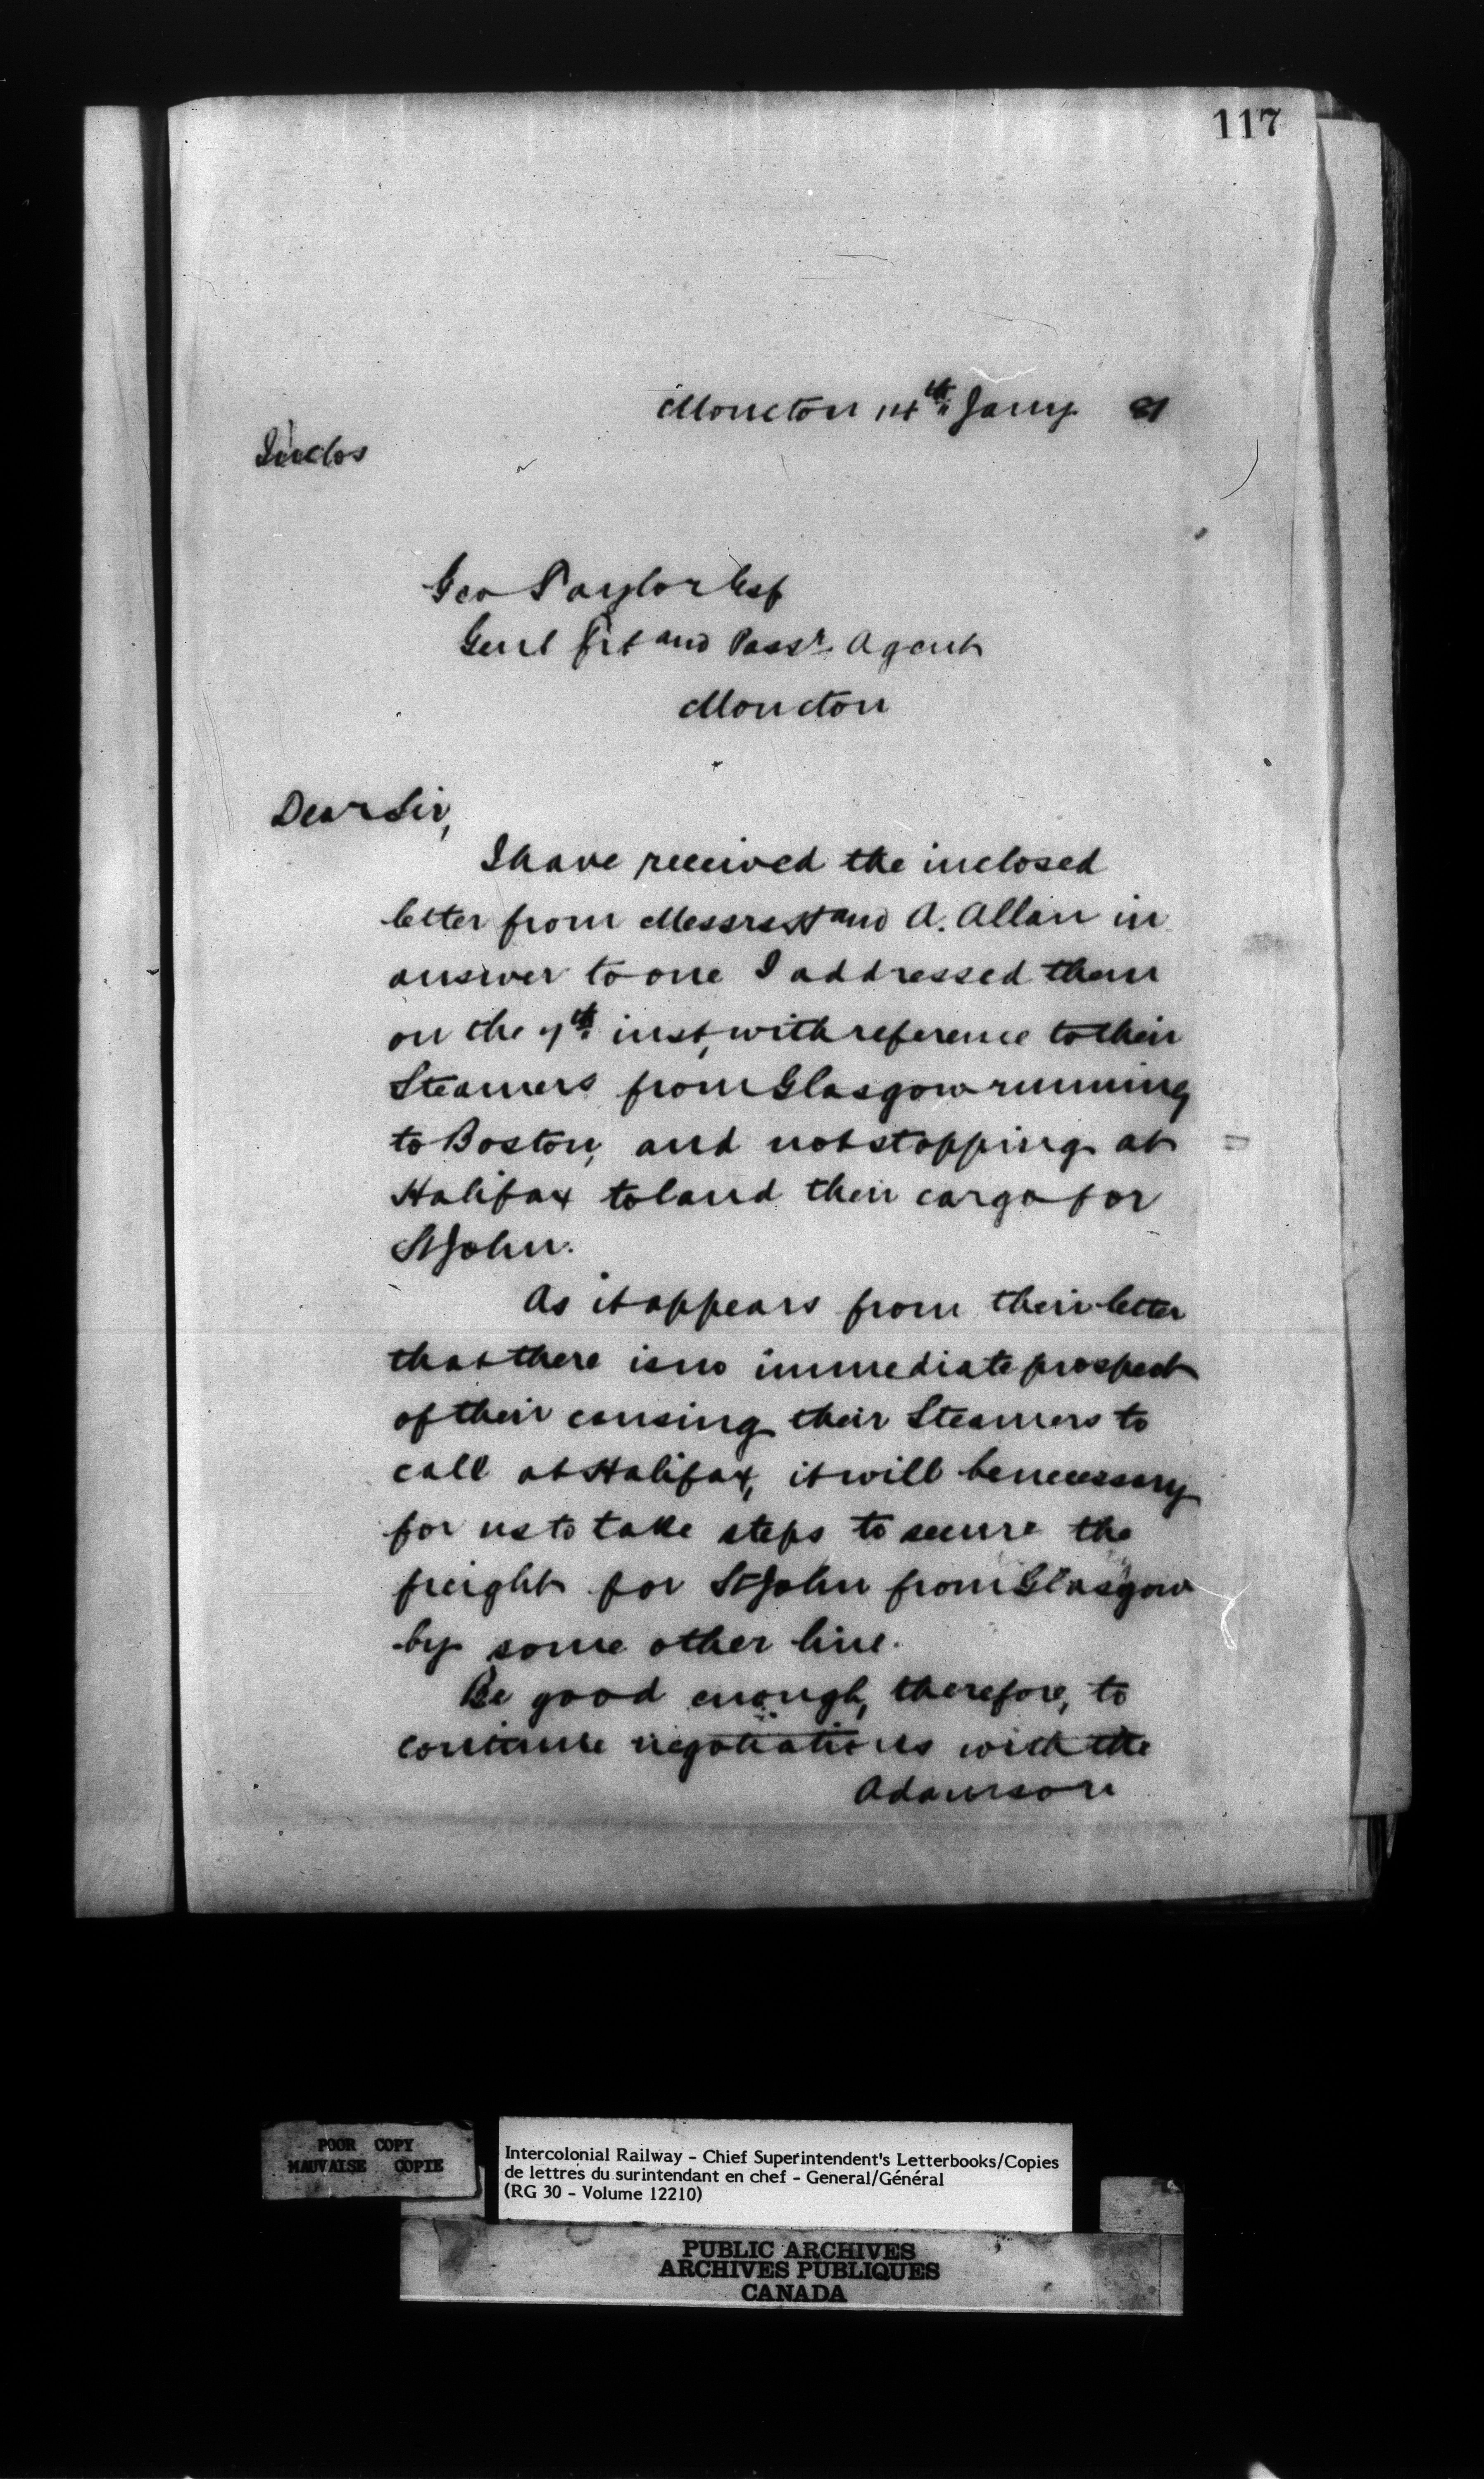 117
Moncton 14th Jany 81
Inclos
Geo Taylor Esq
Genl Frt and Passr Agent
Moncton
Dear Sir,
I have received the inclosed
letter from Messrs H and A. Allan in
answer to one I addressed them
on the 7th inst, with reference to their
Steamers from Glasgow running
to Boston, and not stopping at
Halifax to land their cargo for
St John.
As it appears from their letter
that there is no immediate prospect
of their causing their Steamers to
call at Halifax, it will be necessary
for us to take steps to secure the
freight for St John from Glasgow
by some other line.
Be good enough, therefore, to
continue negotiations with the
Adamson
POOR COPY
MAUVAISE COPIE
Intercolonial Railway - Chief Superintendent's Letterbooks/Copies
de lettres du surintendant en chef - General/Général
(RG 30 - Volume 12210)
PUBLIC ARCHIVES
ARCHIVES PUBLIQUES
CANADA